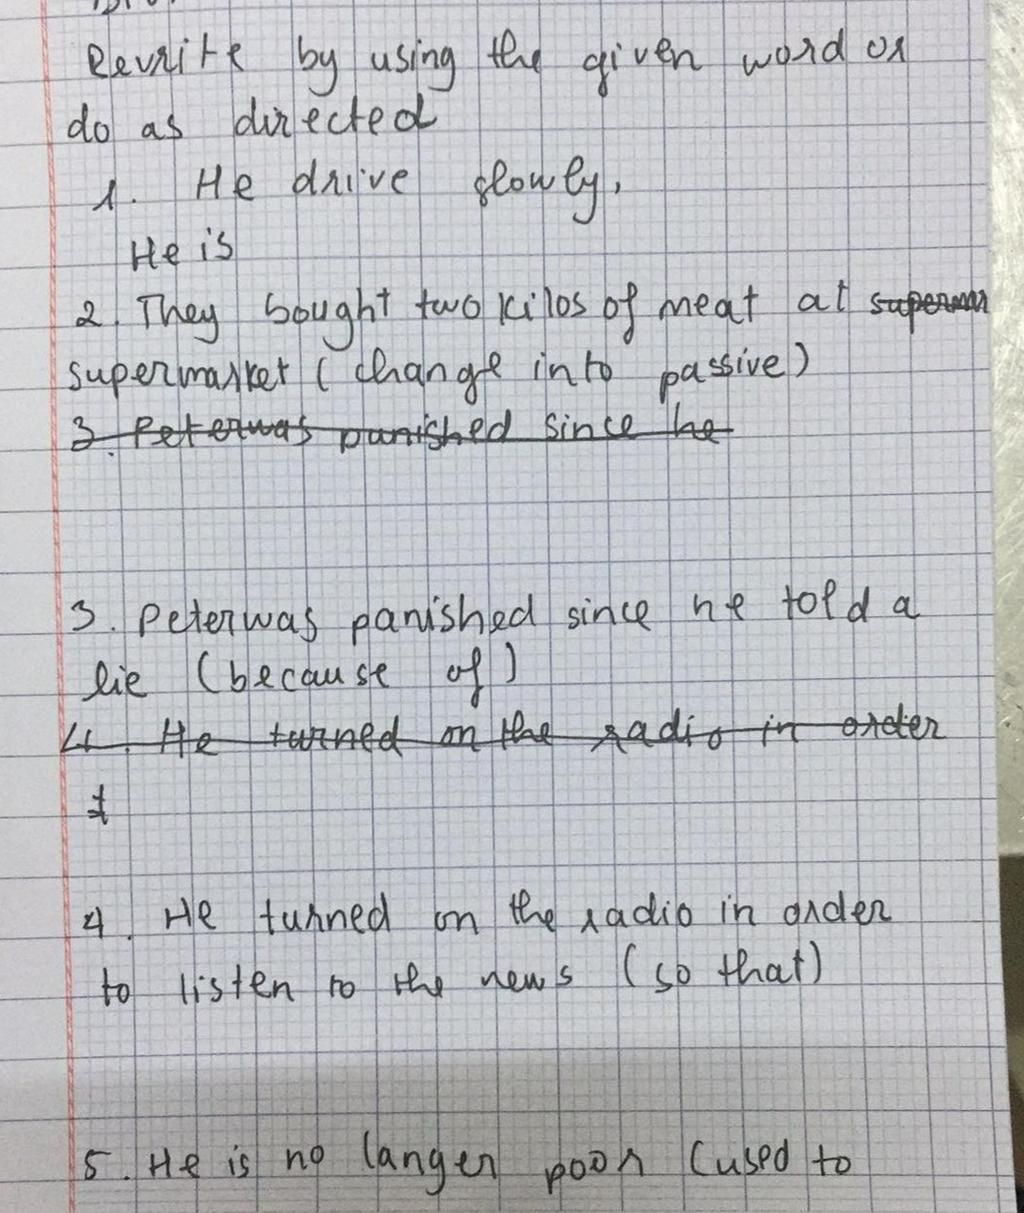 Rewrite by using the given word or
do as directed
1. He drive slowly.
He is
2. They bought two kilos of meat at supermar
supermarket (change into passive)
3. Peter was panished since he
3. Peter was panished since he told a
lie (because of)
4. He turned on the radio in order
t
4. He turned on the radio in order
to listen to the news (so that)
5. He is no langer poor (used to